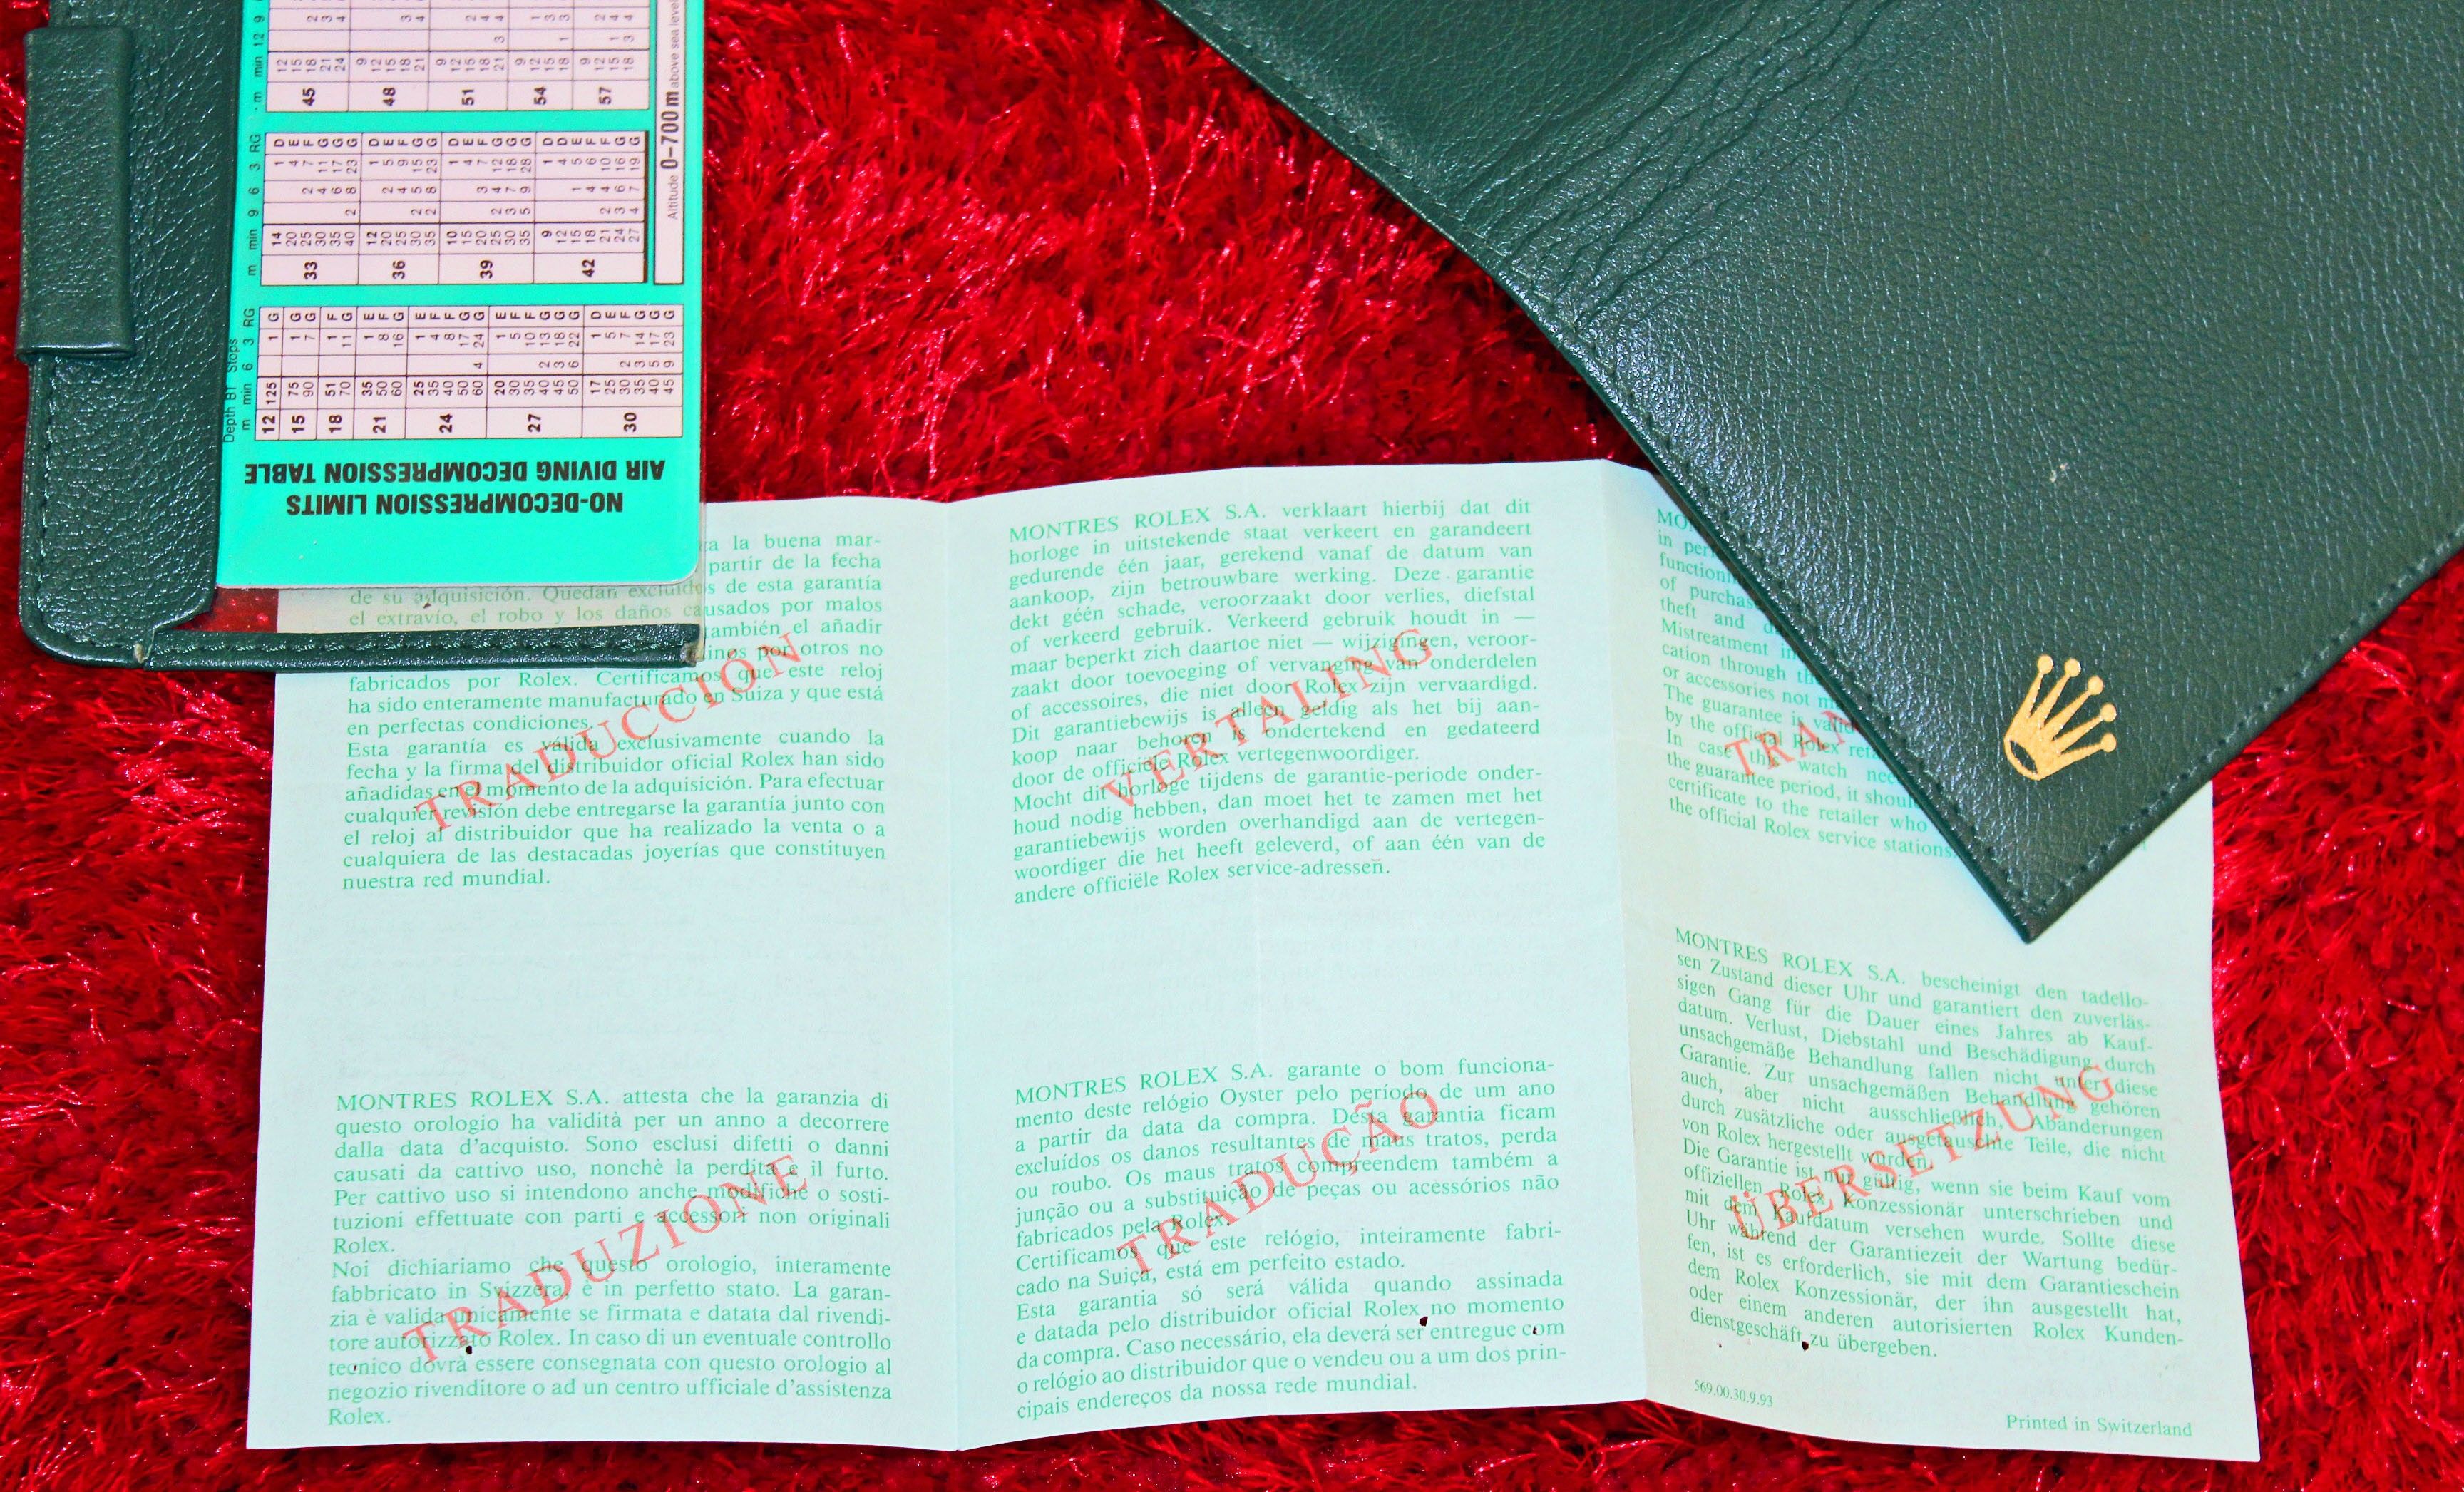 NO-DECOMPRESSION LIMITS
AIR DIVING DECOMPRESSION TABLE
Depth BT Stops
m min 6 3 RG
12 125 1 G
15 75 1 G
90 7 G
18 51 1 F
70 11 G
21 35 1 E
50 8 F
60 16 G
24 25 1 E
35 4 F
40 8 F
50 17 G
60 4 24 G
27 20 1 E
30 5 F
35 10 F
40 2 13 G
45 3 18 G
50 6 22 G
30 17 1 D
25 5 E
30 2 7 F
35 3 14 G
40 5 17 G
45 9 23 G
m min 9 6 3 RG
33 14 1 D
20 4 E
25 2 7 F
30 4 11 G
35 6 17 G
40 2 8 23 G
36 12 1 D
20 2 5 E
25 4 9 F
30 2 5 15 G
35 2 8 23 G
39 10 1 D
15 4 E
20 3 7 F
25 2 4 12 G
30 3 7 18 G
35 5 9 28 G
42 9 1 D
12 4 D
15 1 5 E
18 4 6 F
21 2 4 10 F
24 3 6 16 G
27 4 7 19 G
m min 12 9
45 12
15
18 2
21 3
24 4
48 9
12
15
18 3
21 4
51 9
12
15 2
18 4
21 3 4
54 9
12 1
15 3
18 1 3
57 9
12 2
15 1 4
18 3 4
Altitude 0–700 m above sea level
la buena mar-
partir de la fecha
de su adquisición. Quedan excluidos de esta garantía
el extravío, el robo y los daños causados por malos
también el añadir
por otros no
fabricados por Rolex. Certificamos que este reloj
ha sido enteramente manufacturado en Suiza y que está
en perfectas condiciones.
Esta garantía es válida exclusivamente cuando la
fecha y la firma del distribuidor oficial Rolex han sido
añadidas en el momento de la adquisición. Para efectuar
cualquier revisión debe entregarse la garantía junto con
el reloj al distribuidor que ha realizado la venta o a
cualquiera de las destacadas joyerías que constituyen
nuestra red mundial.
TRADUCCIÓN
MONTRES ROLEX S.A. verklaart hierbij dat dit
horloge in uitstekende staat verkeert en garandeert
gedurende één jaar, gerekend vanaf de datum van
aankoop, zijn betrouwbare werking. Deze garantie
dekt géén schade, veroorzaakt door verlies, diefstal
of verkeerd gebruik. Verkeerd gebruik houdt in —
maar beperkt zich daartoe niet — wijzigingen, veroor-
zaakt door toevoeging of vervanging van onderdelen
of accessoires, die niet door Rolex zijn vervaardigd.
Dit garantiebewijs is alleen geldig als het bij aan-
koop naar behoren is ondertekend en gedateerd
door de officiële Rolex vertegenwoordiger.
Mocht dit horloge tijdens de garantie-periode onder-
houd nodig hebben, dan moet het te zamen met het
garantiebewijs worden overhandigd aan de vertegen-
woordiger die het heeft geleverd, of aan één van de
andere officiële Rolex service-adressen.
VERTALING
in
of purchase
theft and
Mistreatment
cation through
or accessories not
The guarantee is valid
by the official Rolex
In case this watch
the guarantee period, it should
certificate to the retailer who
the official Rolex service stations.
TRAN
MONTRES ROLEX S.A. attesta che la garanzia di
questo orologio ha validità per un anno a decorrere
dalla data d'acquisto. Sono esclusi difetti o danni
causati da cattivo uso, nonchè la perdita e il furto.
Per cattivo uso si intendono anche modifiche o sosti-
tuzioni effettuate con parti e accessori non originali
Rolex.
Noi dichiariamo che questo orologio, interamente
fabbricato in Svizzera, è in perfetto stato. La garan-
zia è valida unicamente se firmata e datata dal rivendi-
tore autorizzato Rolex. In caso di un eventuale controllo
tecnico dovrà essere consegnata con questo orologio al
negozio rivenditore o ad un centro ufficiale d'assistenza
Rolex.
TRADUZIONE
MONTRES ROLEX S.A. garante o bom funciona-
mento deste relógio Oyster pelo período de um ano
a partir da data da compra. Desta garantia ficam
excluídos os danos resultantes de maus tratos, perda
ou roubo. Os maus tratos compreendem também a
junção ou a substituição de peças ou acessórios não
fabricados pela Rolex.
Certificamos que este relógio, inteiramente fabri-
cado na Suiça, está em perfeito estado.
Esta garantia só será válida quando assinada
e datada pelo distribuidor oficial Rolex no momento
da compra. Caso necessário, ela deverá ser entregue com
o relógio ao distribuidor que o vendeu ou a um dos prin-
cipais endereços da nossa rede mundial.
TRADUÇÃO
MONTRES ROLEX S.A. bescheinigt den tadello-
sen Zustand dieser Uhr und garantiert den zuverläs-
sigen Gang für die Dauer eines Jahres ab Kauf-
datum. Verlust, Diebstahl und Beschädigung durch
unsachgemäße Behandlung fallen nicht unter diese
Garantie. Zur unsachgemäßen Behandlung gehören
auch, aber nicht ausschließlich, Abänderungen
durch zusätzliche oder ausgetauschte Teile, die nicht
von Rolex hergestellt wurden.
Die Garantie ist nur gültig, wenn sie beim Kauf vom
offiziellen Rolex Konzessionär unterschrieben und
mit dem Kaufdatum versehen wurde. Sollte diese
Uhr während der Garantiezeit der Wartung bedür-
fen, ist es erforderlich, sie mit dem Garantieschein
dem Rolex Konzessionär, der ihn ausgestellt hat,
oder einem anderen autorisierten Rolex Kunden-
dienstgeschäft zu übergeben.
ÜBERSETZUNG
569.00.30.9.93
Printed in Switzerland